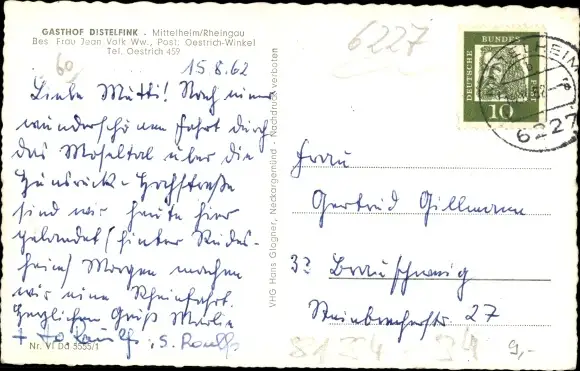 GASTHOF DISTELFINK - Mittelheim/Rheingau
Bes. Frau Jean Volk Ww., Post: Oestrich-Winkel
Tel. Oestrich 459
60
15.8.62
Liebe Mutti! Nach einer
wunderschönen Fahrt durch
das Moseltal über die
Hunsrück-Hochstraße
sind wir heute hier
gelandet (hinter Rüdes-
heim) Morgen machen
wir eine Rheinfahrt.
Herzlichen Gruß Marlie
Nr. VI Dd 3555/1
VHG Hans Glogner, Neckargemünd - Nachdruck verboten
6227
DEUTSCHE BUNDESPOST
10
6227
Frau
Gertrud Gillmann
33 Braunschweig
Steinbrecherstr. 27
9,-